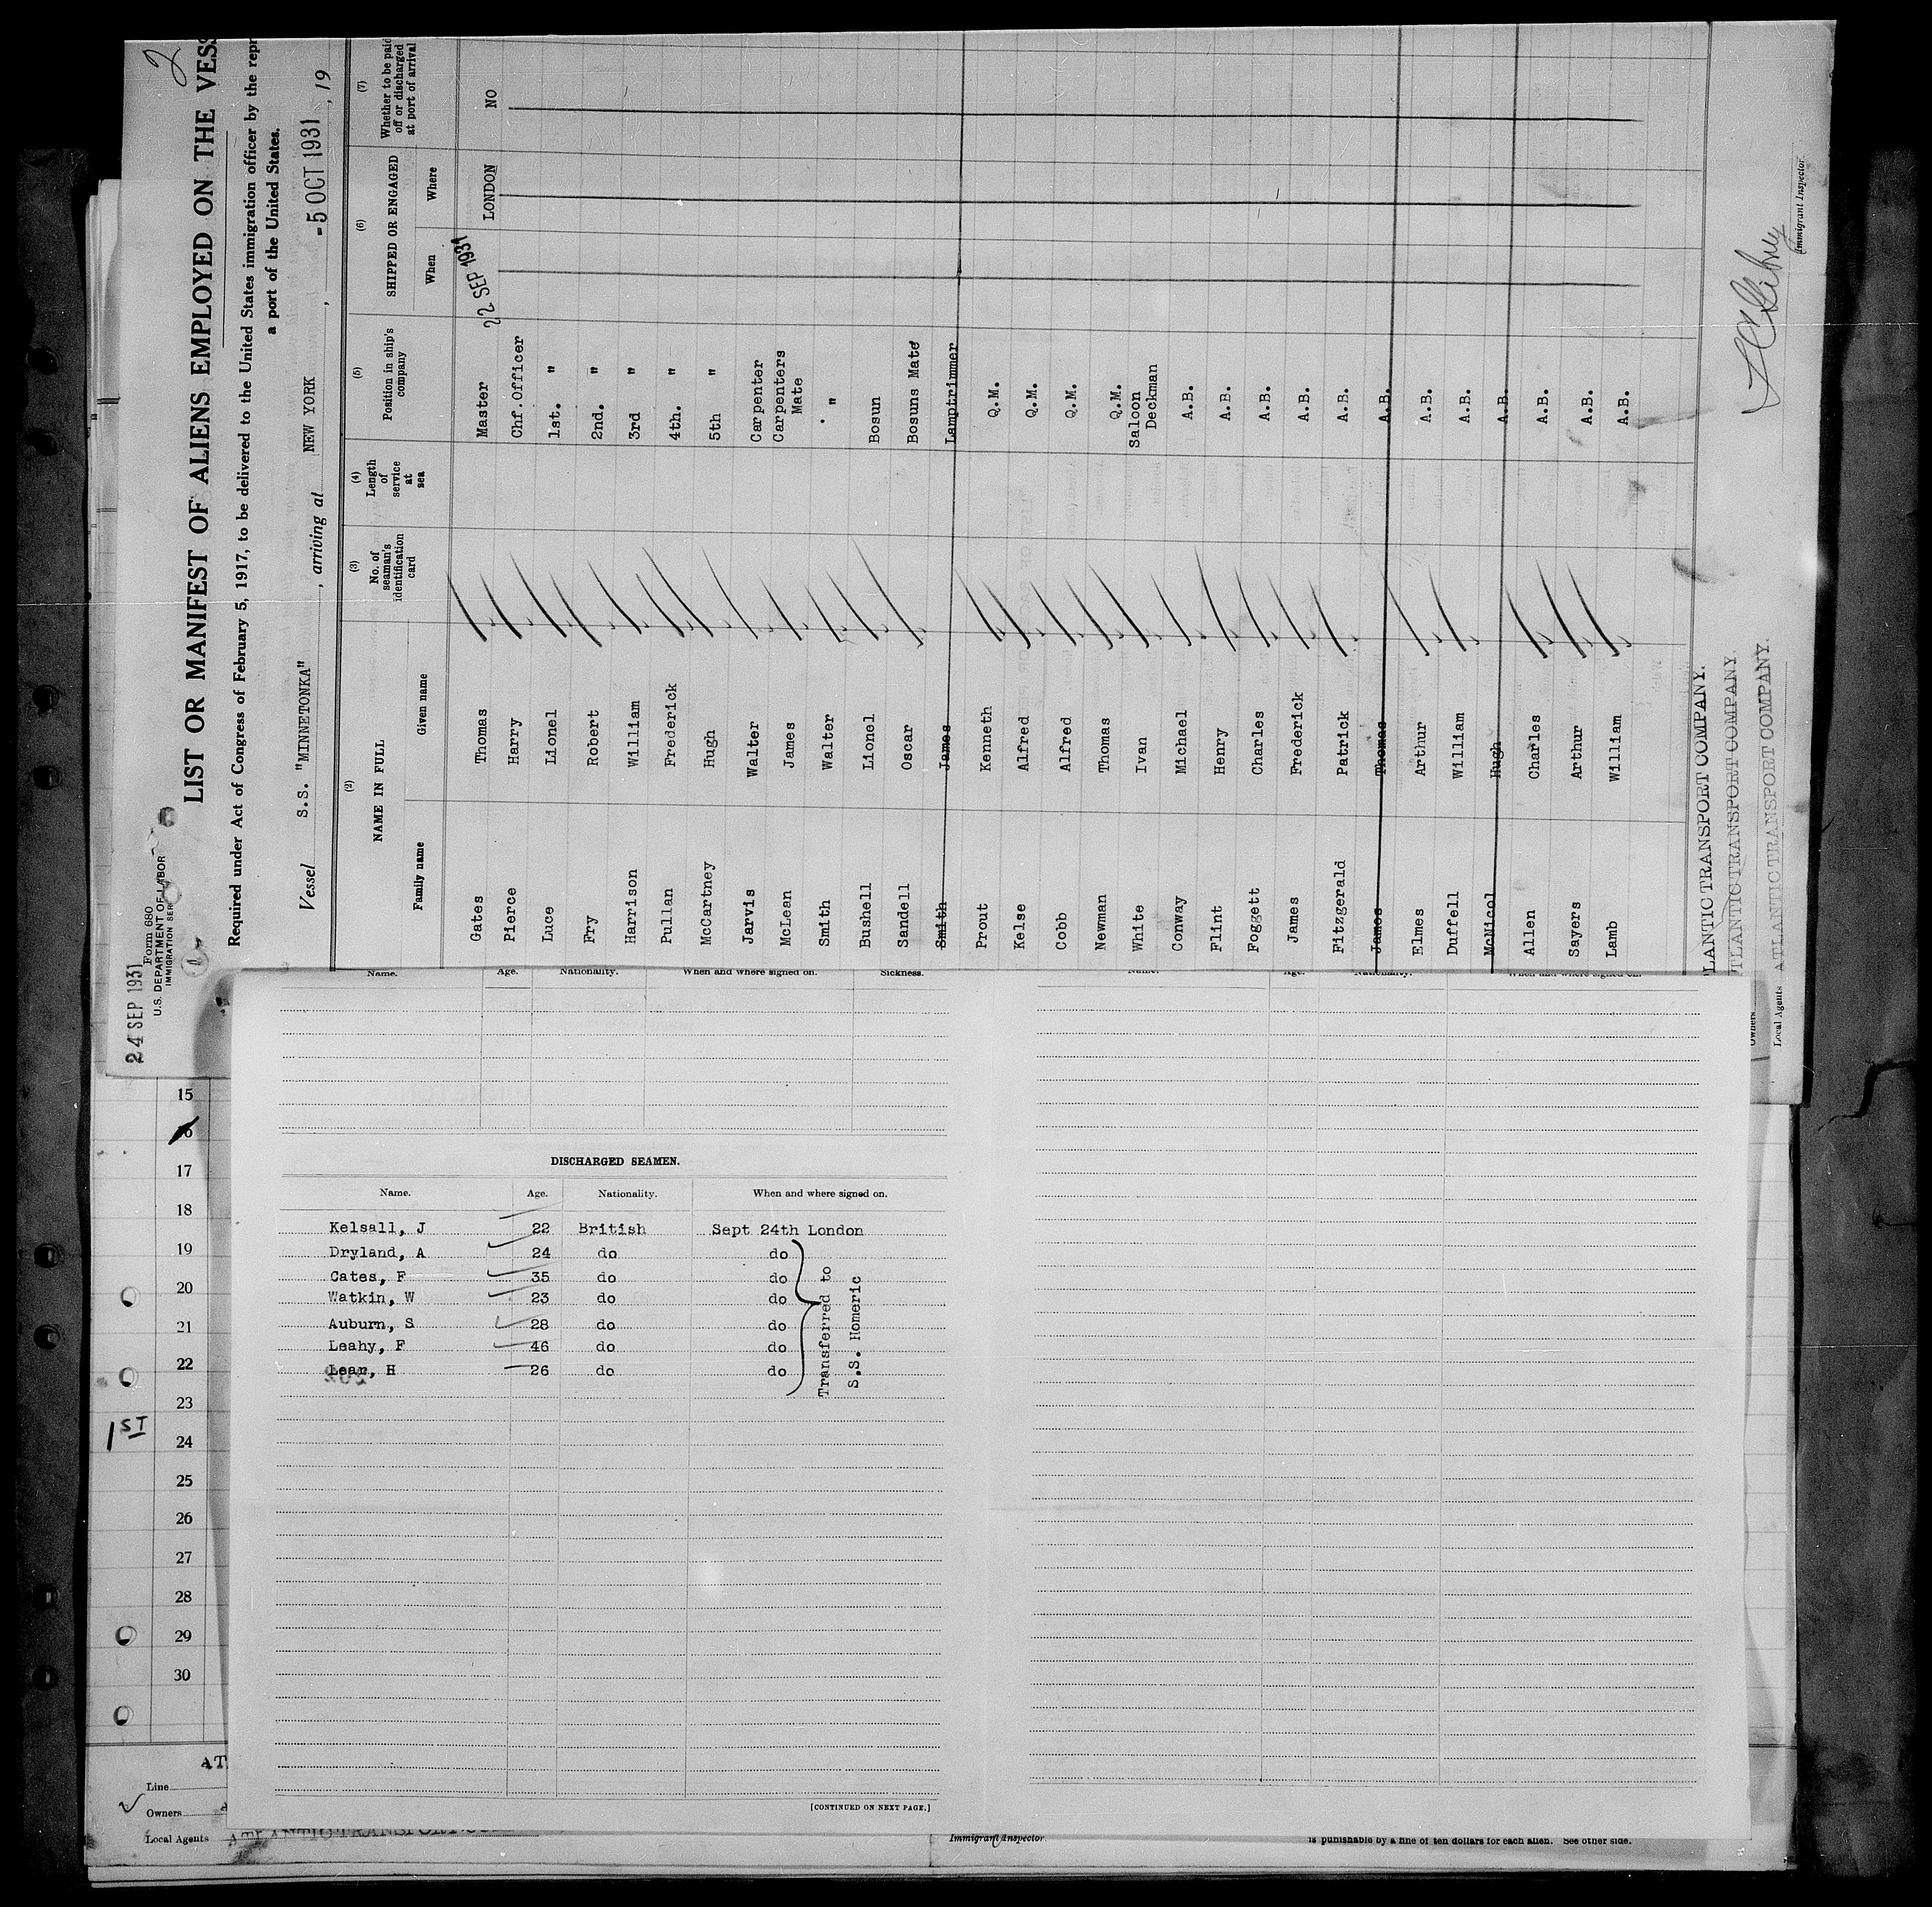 2
24 SEP 1931
Form 680
U.S. DEPARTMENT OF LABOR
IMMIGRATION SER
LIST OR MANIFEST OF ALIENS EMPLOYED ON THE VESS
Required under Act of Congress of February 5, 1917, to be delivered to the United States immigration officer by the repr
a port of the United States.
Vessel S.S. "MINNETONKA", arriving at NEW YORK, -5 OCT 1931, 19
(2) (3) (4) (5) (6) (7)
NAME IN FULL
Family name Given name
No. of seaman's identification card
Length of service at sea
Position in ship's company
SHIPPED OR ENGAGED
When Where
Whether to be paid off or discharged at port of arrival
Gates Thomas Master 22 SEP 1931 LONDON NO
Pierce Harry Chf.Officer
Luce Lionel 1st. "
Fry Robert 2nd. "
Harrison William 3rd "
Pullan Frederick 4th. "
McCartney Hugh 5th "
Jarvis Walter Carpenter
McLean James Carpenters Mate
Smith Walter "
Bushell Lionel Bosun
Sandell Oscar Bosuns Mate
Smith James Lamptrimmer
Prout Kenneth Q.M.
Kelse Alfred Q.M.
Cobb Alfred Q.M.
Newman Thomas Q.M.
White Ivan Saloon Deckman
Conway Michael A.B.
Flint Henry A.B.
Foggett Charles A.B.
James Frederick A.B.
Fitzgerald Patrick A.B.
James Thomas A.B.
Elmes Arthur A.B.
Duffell William A.B.
McNicol Hugh A.B.
Allen Charles A.B.
Sayers Arthur A.B.
Lamb William A.B.
LANTIC TRANSPORT COMPANY.
Owners TLANTIC TRANSPORT COMPANY.
Local Agents ATLANTIC TRANSPORT COMPANY.
Immigrant Inspector
Name. Age. Nationality. When and where signed on. Sickness.
Name. Age. Nationality. When and where signed on.
DISCHARGED SEAMEN.
Name. Age. Nationality. When and where signed on.
Kelsall, J 22 British Sept 24th London
Dryland, A 24 do do
Cates, F 35 do do
Watkin, W 23 do do
Auburn, S 28 do do
Leahy, F 46 do do
Lear, H 26 do do
Transferred to
S.S. Homeric
[CONTINUED ON NEXT PAGE.]
15
16
17
18
19
20
21
22
23
1ST
24
25
26
27
28
29
30
AT
Line
Owners
Local Agents ATLANTIC TRANSPORT
Immigrant Inspector
is punishable by a fine of ten dollars for each alien. See other side.